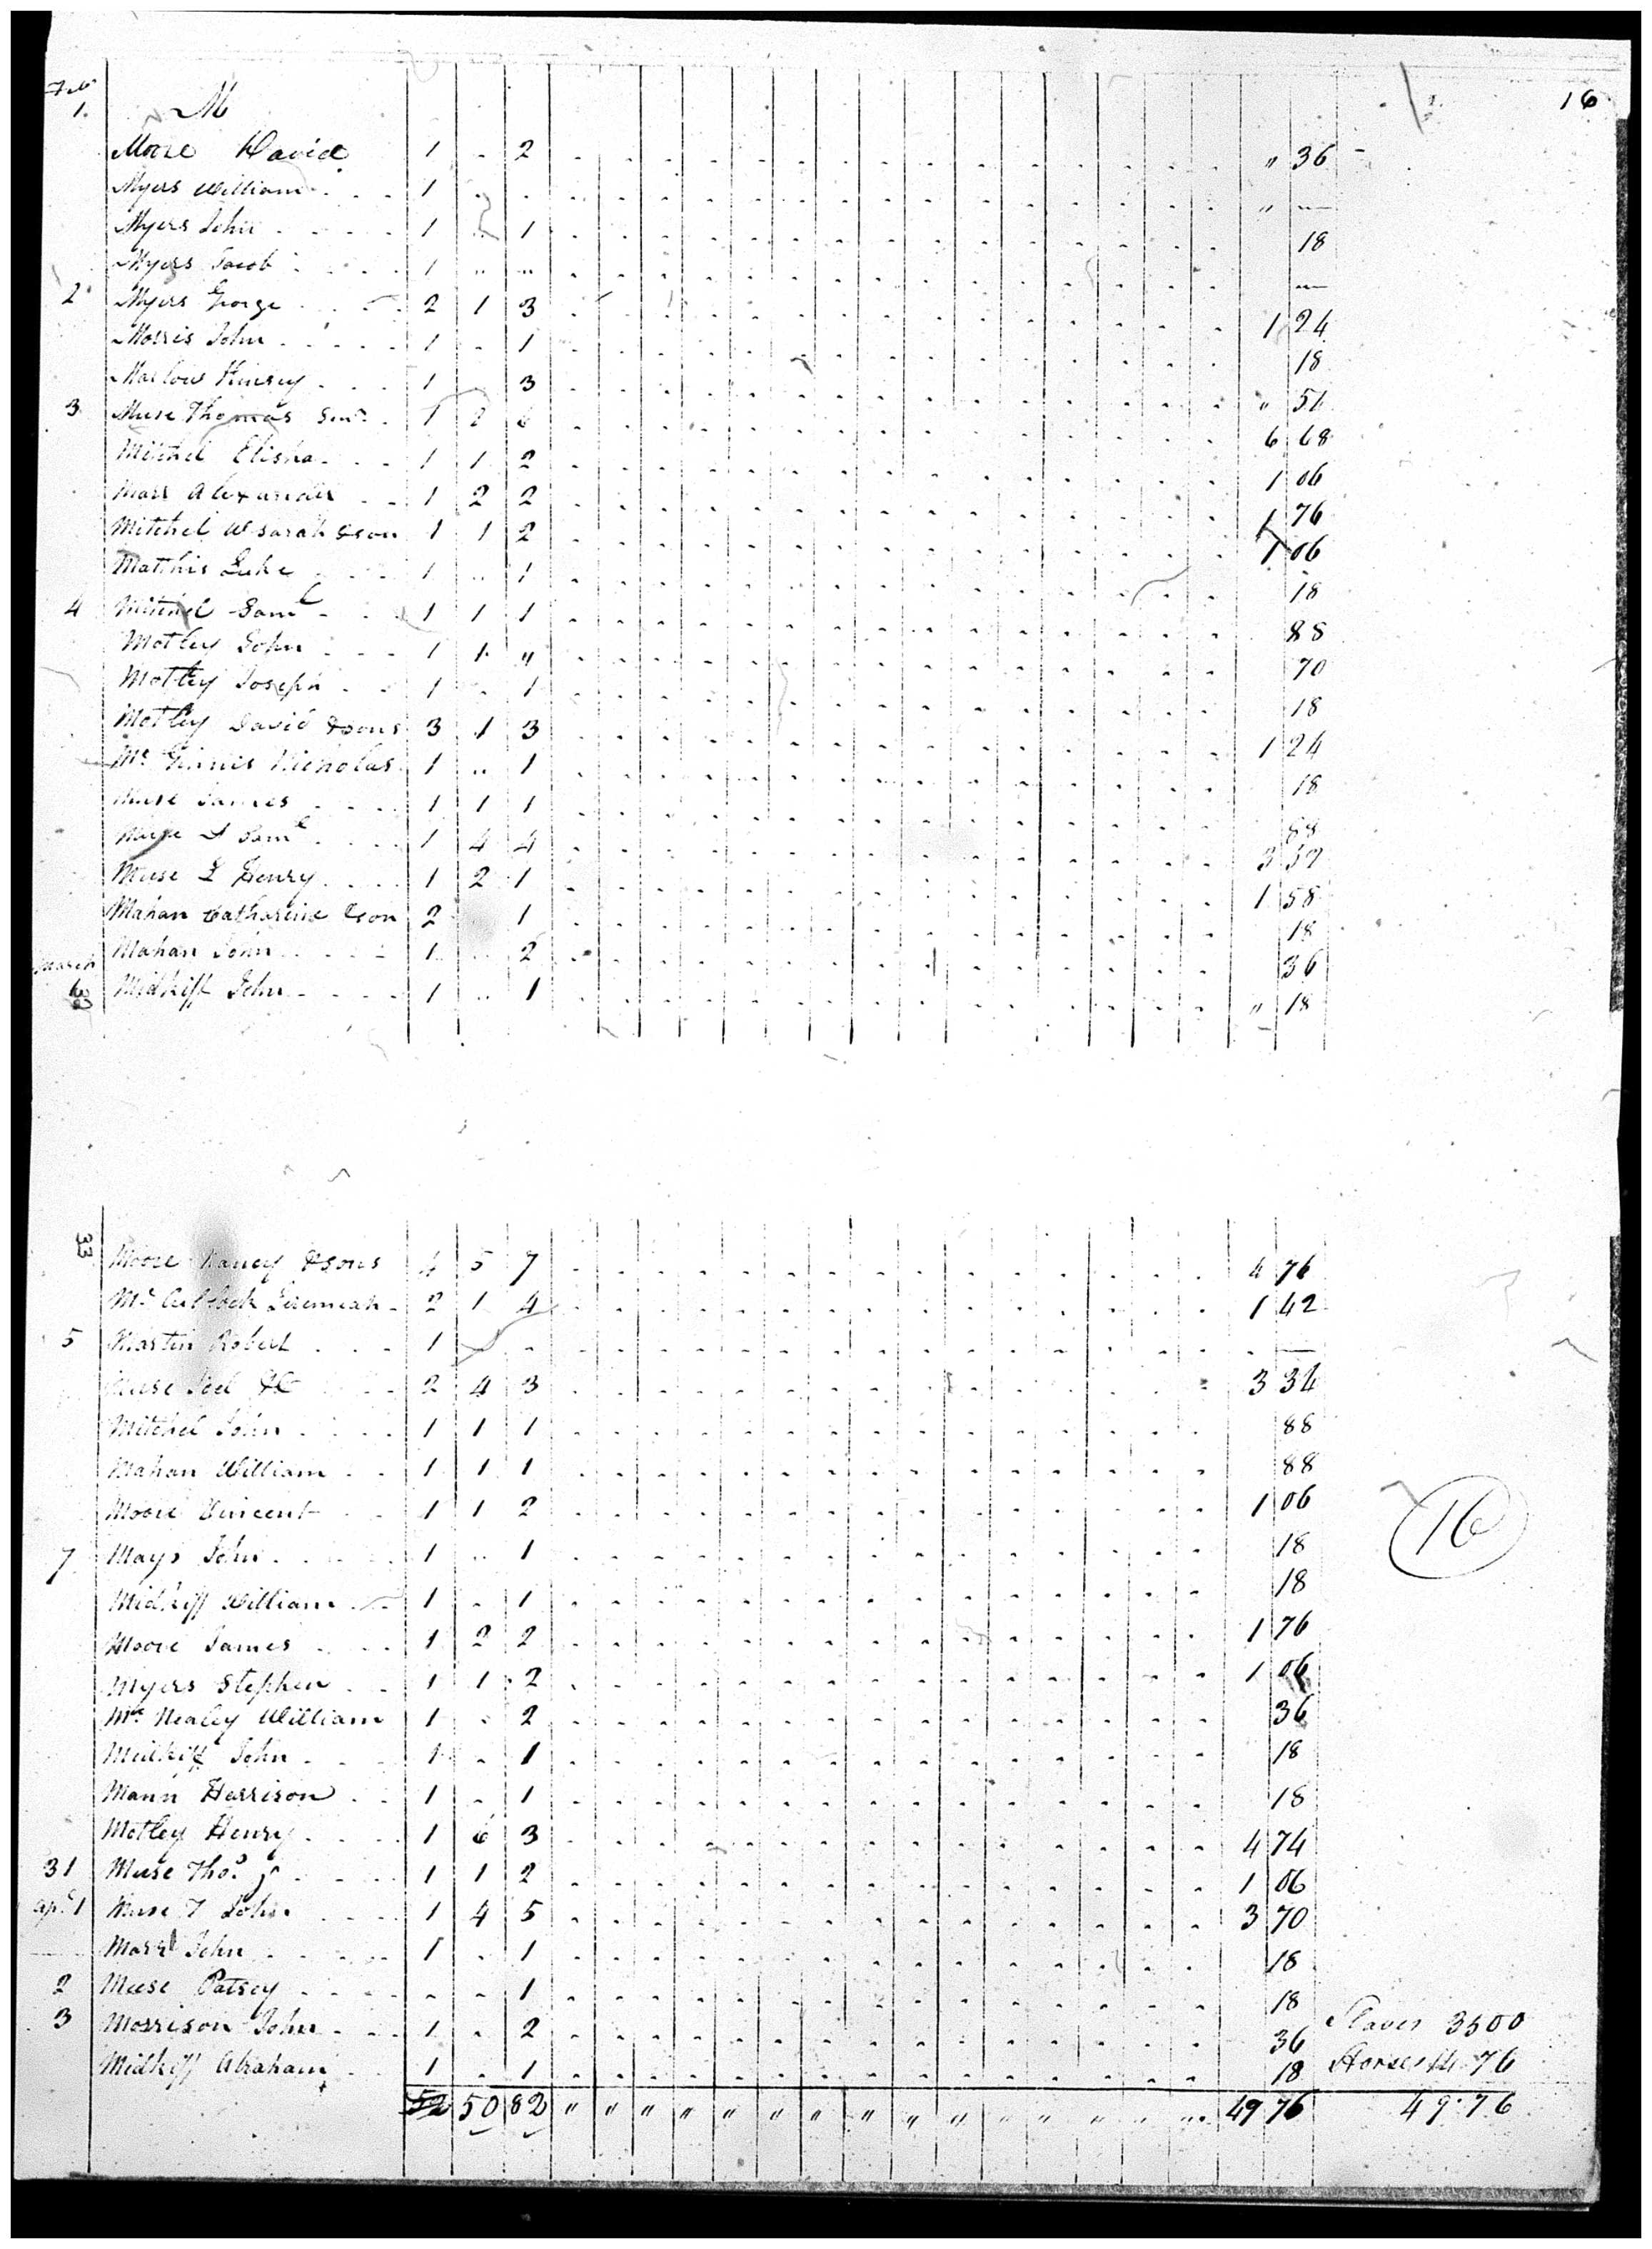 Feb
1. M 16
Moore David 1 . 2 " 36
Myers William 1 . . " —
Myers John 1 .. 1 18
Myers Jacob 1 .. .. —
2 Myers George 2 1 3 1 24
Morris John 1 . 1 18
Marlow Kinsey 1 3 " 54
3 Muse Thomas Senr. 1 8 6 6 68
Mitchel Elisha 1 1 2 1 06
Marr Alexander 1 2 2 1 76
Mitchel W Sarah & son 1 1 2 1 06
Matthis Luke 1 .. 1 18
4 Mitchel Saml 1 1 1 88
Motley John 1 1 " 70
Motley Joseph 1 . 1 18
Motley David & sons 3 1 3 1 24
Mc Ginnis Nicholas 1 .. 1 18
Muse James 1 1 1 88
Muse Saml 1 4 4 3 52
Muse L Henry 1 2 1 1 58
Mahan Catharine & son 2 1 18
March Mahan John 1 .. 2 36
Midkiff John 1 .. 1 " 18
33 Moore Nancy & sons 4 5 7 4 76
Mc Cullock Jeremiah 2 1 4 1 42
5 Martin Robert 1 . . —
Muse Joel 2 4 3 3 34
Mitchel John 1 1 1 88
Mahan William 1 1 1 88
Moore Vincent 1 1 2 1 06
16
7 Mays John 1 .. 1 18
Midkiff William 1 . 1 18
Moore James 1 2 2 1 76
Myers Stephen 1 1 2 1 06
Mc Nealey William 1 . 2 36
Midkiff John 1 . 1 18
Mann Harrison 1 . 1 18
Motley Henry 1 6 3 4 74
31 Muse Thos. jr 1 1 2 1 06
Apl 1 Muse T John 1 4 5 3 70
Marr John 1 . 1 18
2 Muse Patsey . . 1 18
3 Morrison John 1 . 2 36 Slaves 3500
Midkiff Abraham 1 . 1 18 Horses 14.76
52 50 82 " " " " " " " " " " " " " " 49 76 49.76